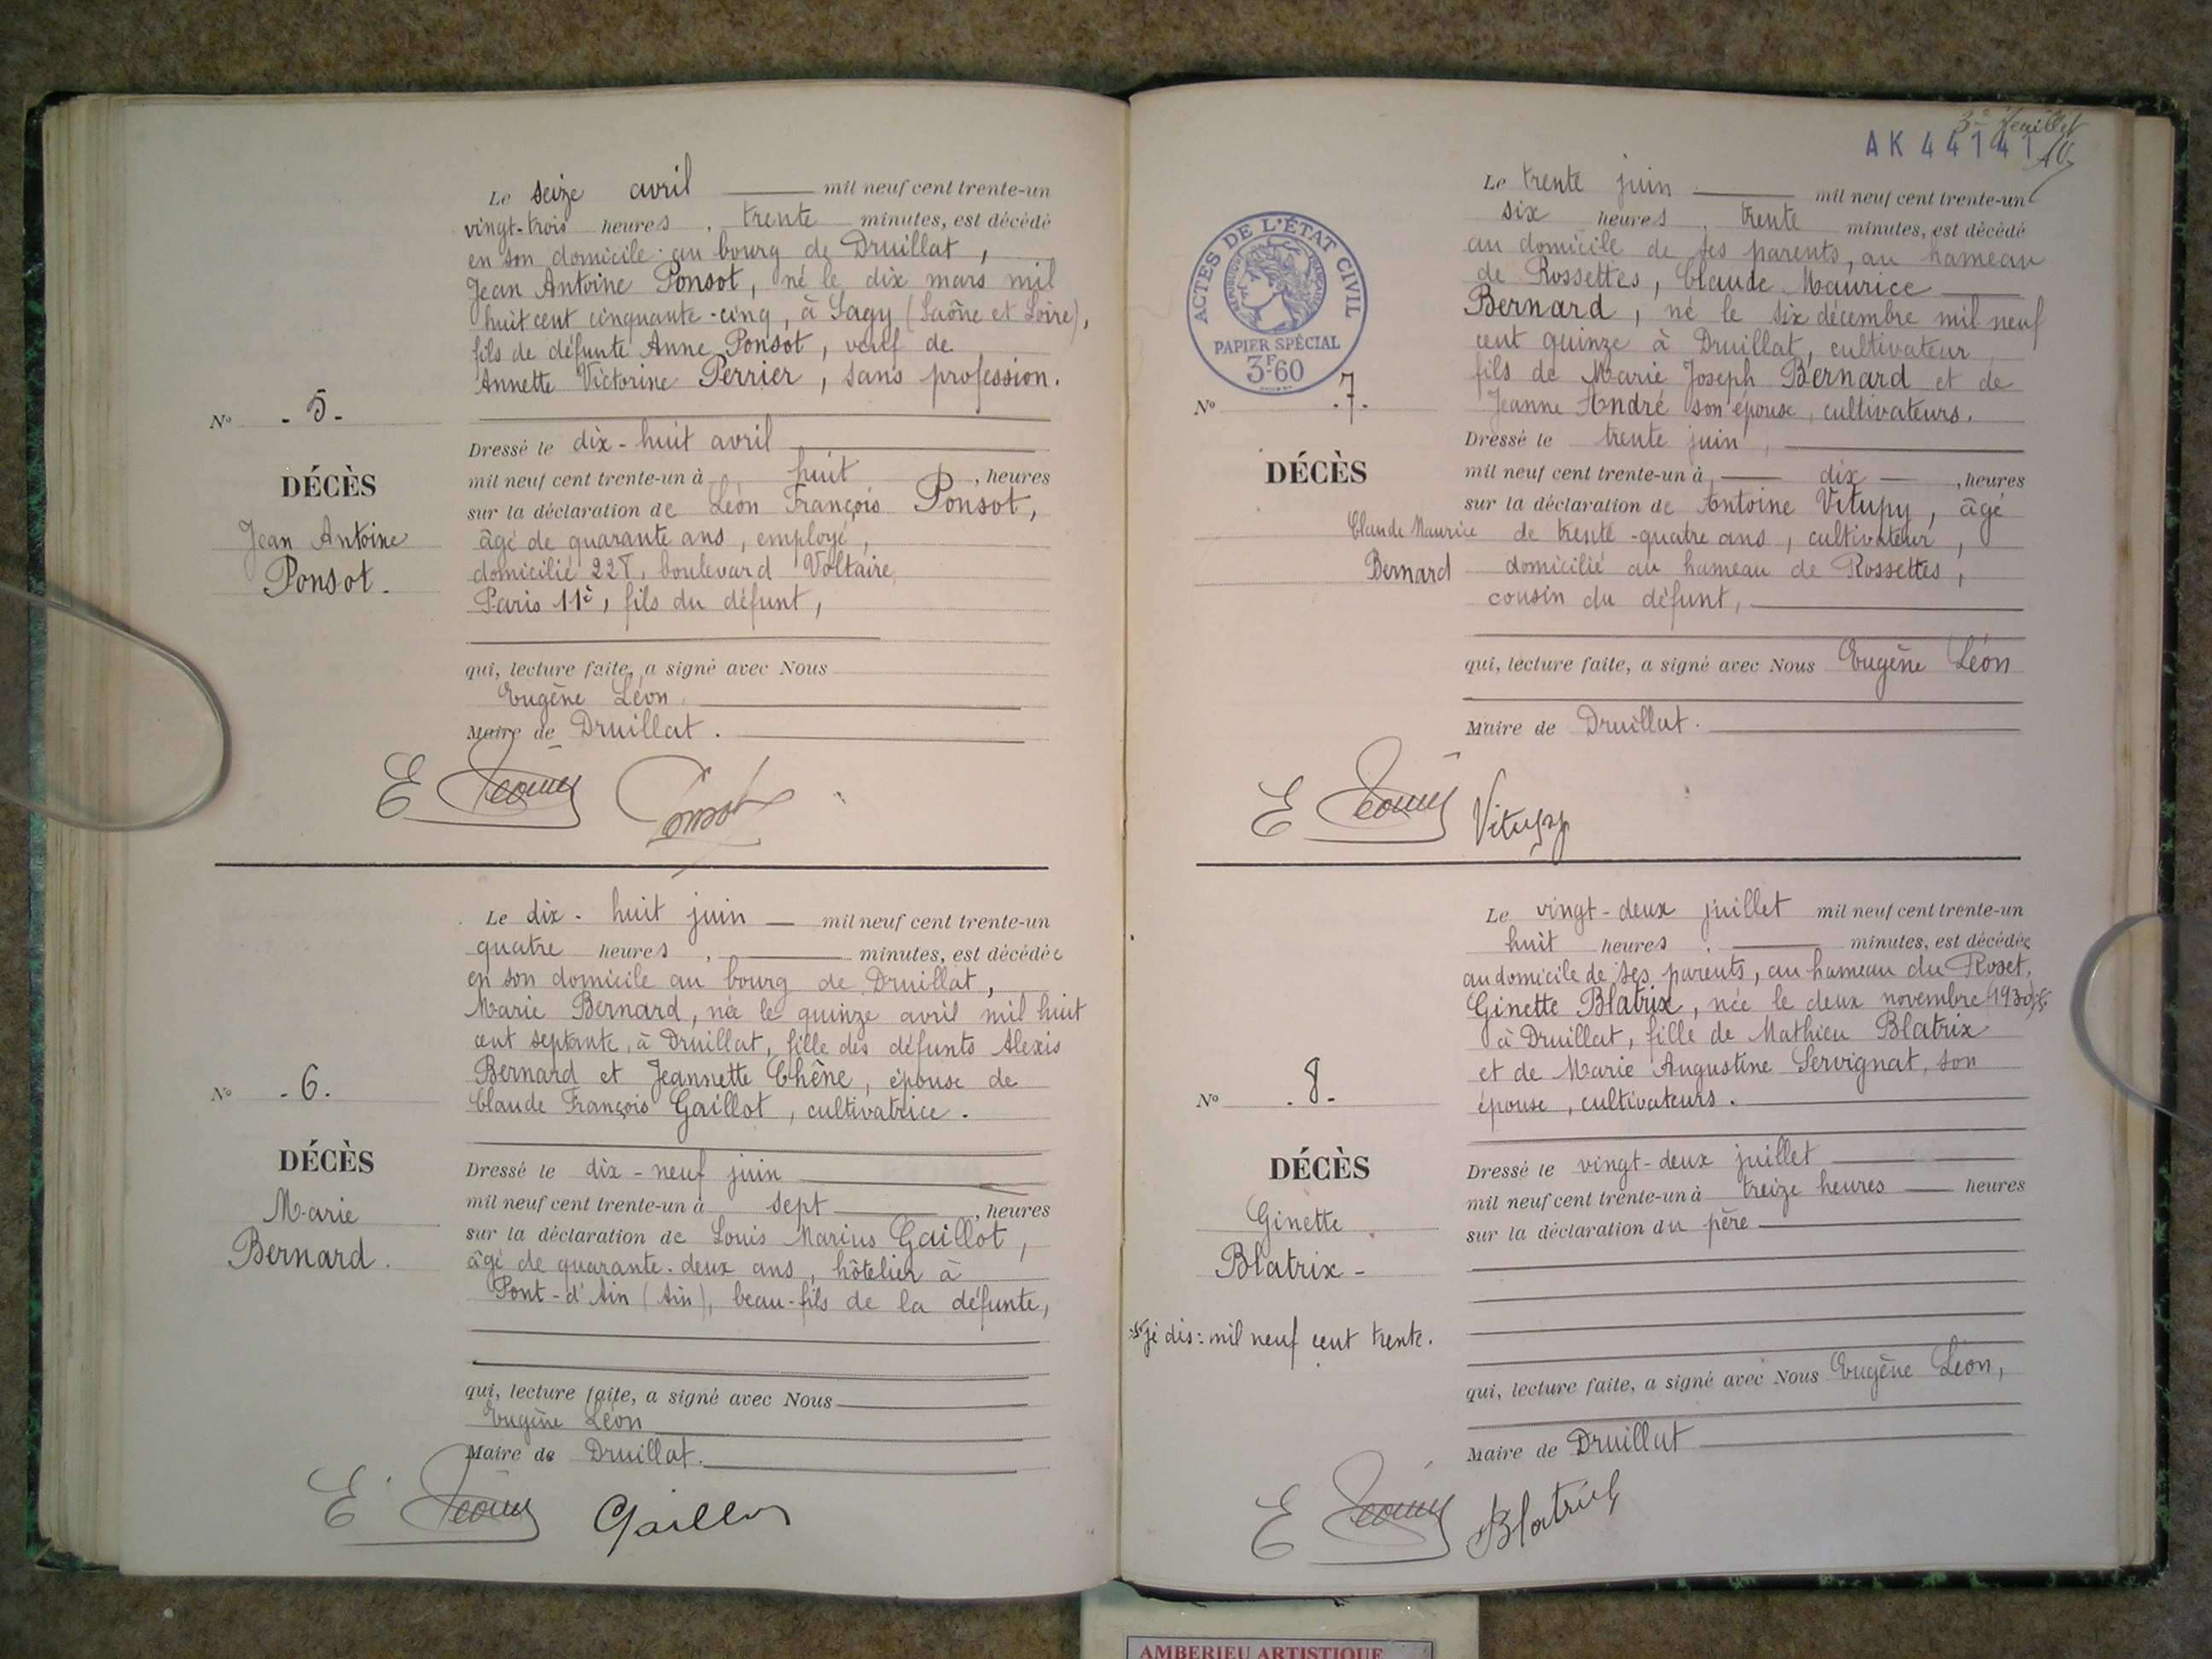 Le seize avril mil neuf cent trente-un
vingt-trois heures, trente minutes, est décédé
en son domicile au bourg de Druillat,
Jean Antoine Ponsot, né le dix mars mil
huit cent cinquante-cinq, à Sagy (Saône et Loire),
fils de défunte Anne Ponsot, veuf de
Annette Victorine Perrier, sans profession.
N° - 5 -
DÉCÈS
Jean Antoine
Ponsot.
Dressé le dix-huit avril
mil neuf cent trente-un à huit, heures
sur la déclaration de Léon François Ponsot,
âgé de quarante ans, employé,
domicilié boulevard Voltaire,
Paris 11è, fils du défunt,
qui, lecture faite, a signé avec Nous
Eugène Léon
Maire de Druillat.
E Léon Ponsot
Le dix-huit juin mil neuf cent trente-un
quatre heures, minutes, est décédée
en son domicile au bourg de Druillat,
Marie Bernard, née le quinze avril mil huit
cent septante, à Druillat, fille des défunts Alexis
Bernard et Jeannette Chêne, épouse de
Claude François Gaillot, cultivatrice.
N° - 6.
DÉCÈS
Marie
Bernard.
Dressé le dix-neuf juin
mil neuf cent trente-un à sept, heures
sur la déclaration de Louis Marius Gaillot,
âgé de quarante-deux ans, hôtelier à
Pont-d'Ain (Ain), beau-fils de la défunte,
qui, lecture faite, a signé avec Nous
Eugène Léon
Maire de Druillat.
E Léon Gaillot
3e feuillet
AK 44141
ACTES DE L'ÉTAT CIVIL
RÉPUBLIQUE FRANÇAISE
PAPIER SPÉCIAL
3F60
Le trente juin mil neuf cent trente-un
six heures, trente minutes, est décédé
au domicile de ses parents, au hameau
de Rossettes, Claude Maurice
Bernard, né le six décembre mil neuf
cent quinze à Druillat, cultivateur,
fils de Marie Joseph Bernard et de
Jeanne André son épouse, cultivateurs.
N° .7.
DÉCÈS
Claude Maurice
Bernard
Dressé le trente juin,
mil neuf cent trente-un à dix, heures
sur la déclaration de Antoine Vitupy, âgé
de trente-quatre ans, cultivateur,
domicilié au hameau de Rossettes,
cousin du défunt,
qui, lecture faite, a signé avec Nous Eugène Léon
Maire de Druillat.
E Léon Vitupy
Le vingt-deux juillet mil neuf cent trente-un
huit heures, minutes, est décédée
au domicile de ses parents, au hameau du Roset,
Ginette Blatrix, née le deux novembre (1930)
à Druillat, fille de Mathieu Blatrix
et de Marie Augustine Servignat, son
épouse, cultivateurs.
N° . 8 -
DÉCÈS
Ginette
Blatrix -
je dis: mil neuf cent trente.
Dressé le vingt-deux juillet
mil neuf cent trente-un à treize heures heures
sur la déclaration du père
qui, lecture faite, a signé avec Nous Eugène Léon,
Maire de Druillat
E Léon Blatrix
AMBERIEU ARTISTIQUE